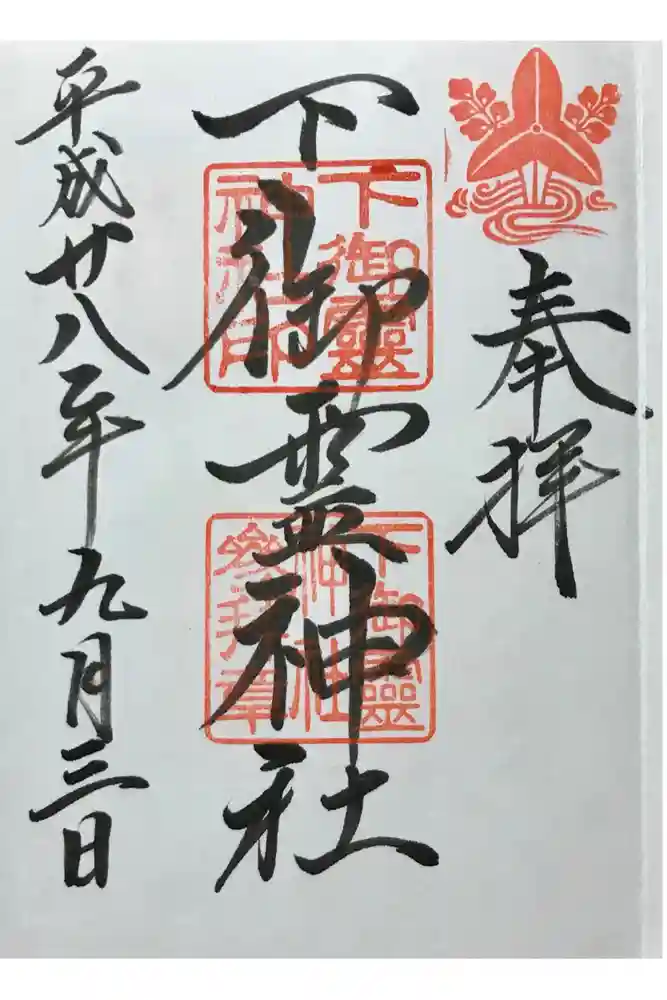 奉拝
下御霊神社
下御靈
神社印
下御靈
神社
參拜章
平成廿八年九月三日